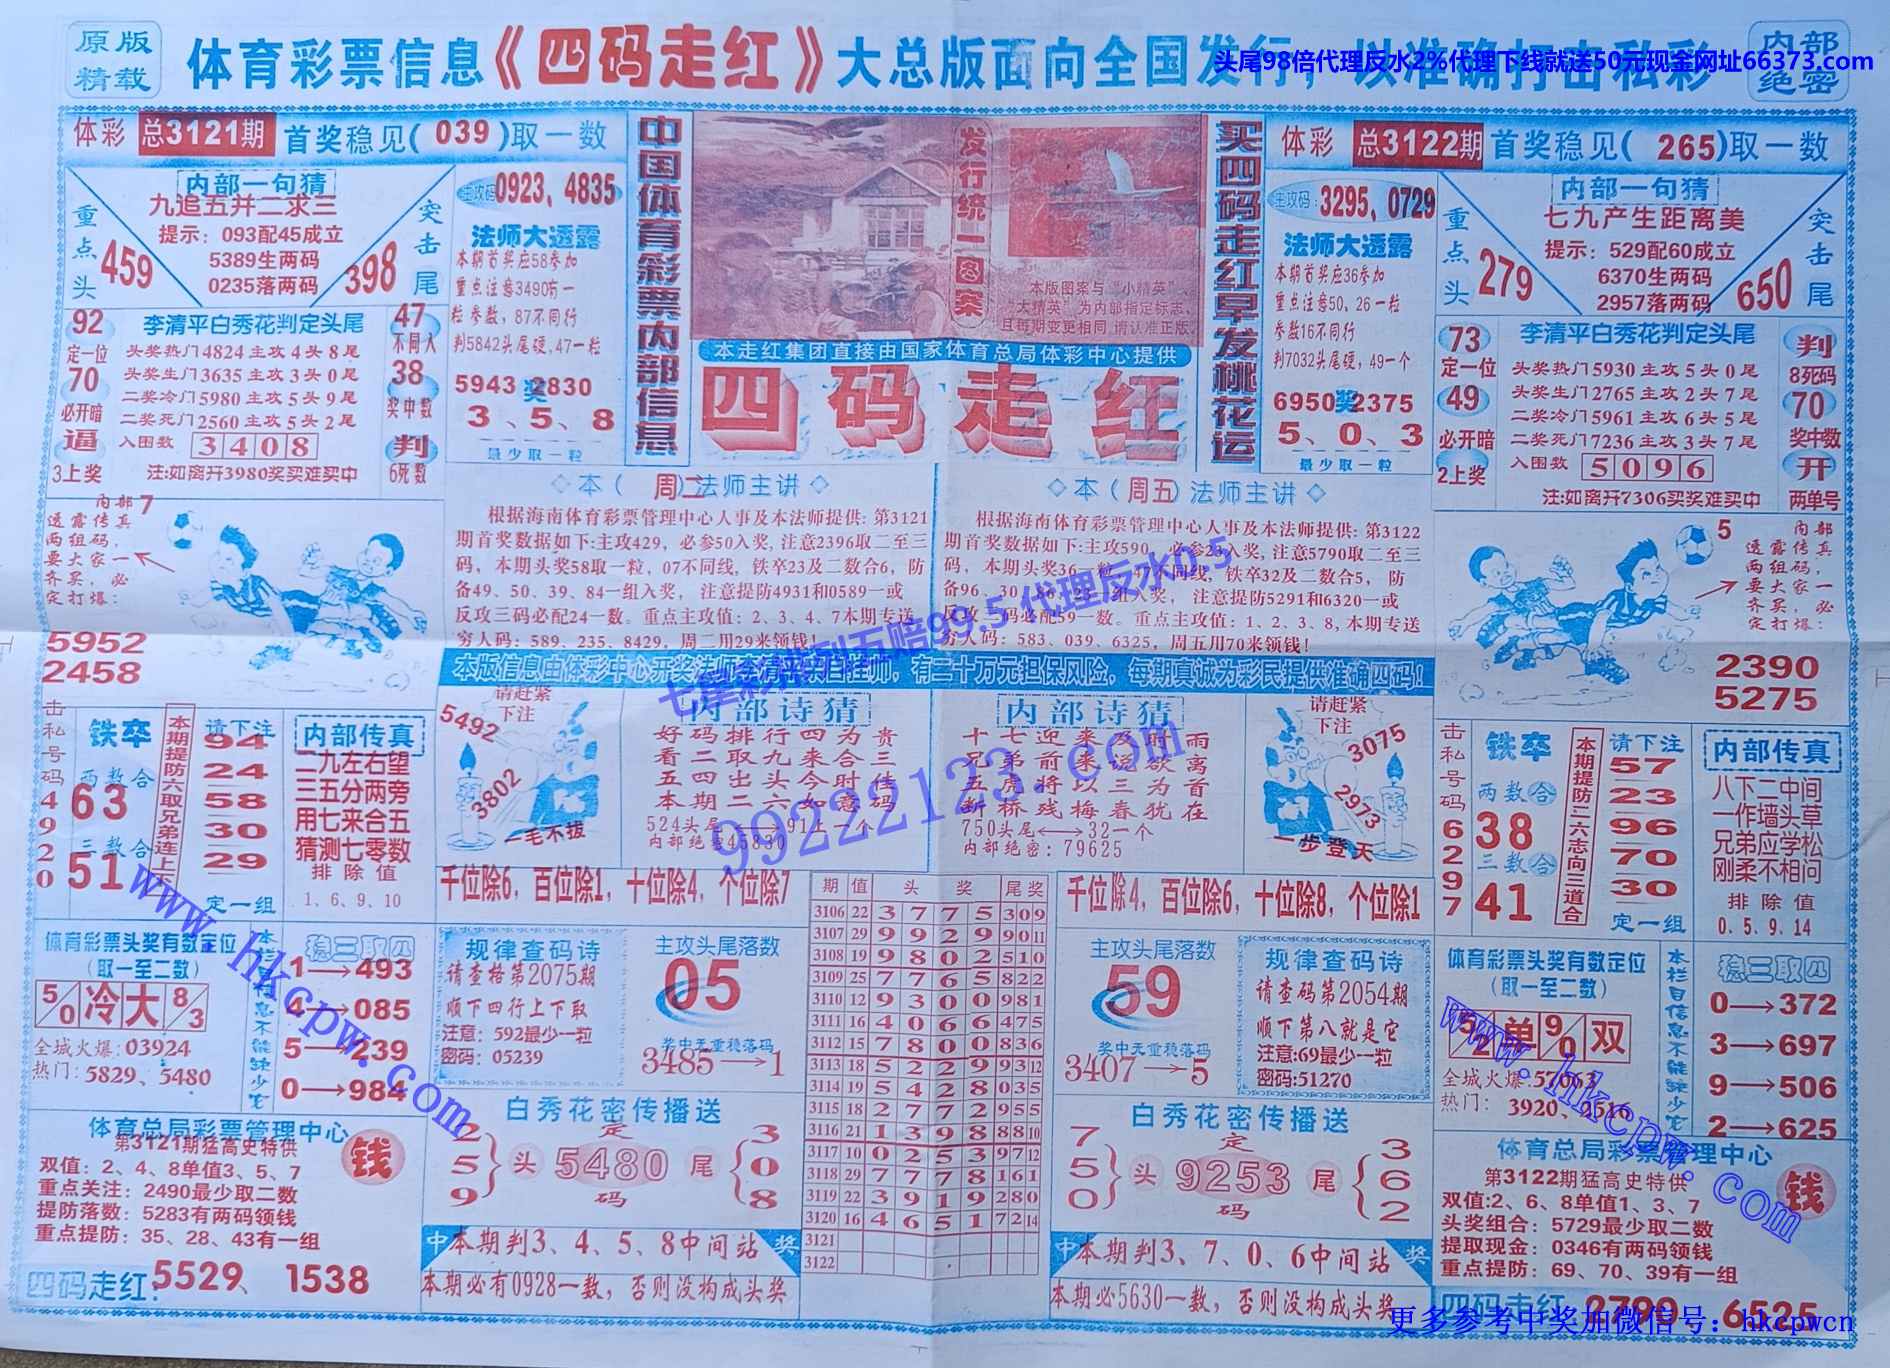 原版
精载
体育彩票信息《四码走红》大总版面向全国发行，以准确打击私彩
内部
绝密
头尾98倍代理反水2%代理下线就送50元现金网址66373.com
体彩 总3121期 首奖稳见(039)取一数
内部一句猜
九追五并二求三
提示：093配45成立
5389生两码
0235落两码
重点头
459
突击尾
398
主攻码 0923、4835
法师大透露
本期首奖应58参加
重点注意3490有一
粒参数，87不同行
判5842头尾硬,47一粒
5943奖2830
3、5、8
最少取一粒
92
定一位
70
必开暗
逼
3上奖
李清平白秀花判定头尾
头奖热门4824主攻4头8尾
头奖生门3635主攻3头0尾
二奖冷门5980主攻5头9尾
二奖死门2560主攻5头2尾
入围数 3408
注:如离开3980奖买难买中
47
不同入
38
奖中数
判
6死数
中国体育彩票内部信息
发行统一图案
本版图案与“小精英”、
“大精英”为内部指定标志、
且每期变更相同,请认准正版。
本走红集团直接由国家体育总局体彩中心提供
四码走红
买四码走红早发桃花运
体彩 总3122期 首奖稳见(265)取一数
主攻码：3295、0729
法师大透露
本期首奖应36参加
重点注意50、26一粒
参数16不同行
判7032头尾硬，49一个
6950奖2375
5、0、3
最少取一粒
内部一句猜
七九产生距离美
提示：529配60成立
6370生两码
2957落两码
重点头
279
突击尾
650
73
定一位
49
必开暗
2上奖
李清平白秀花判定头尾
头奖热门5930主攻5头0尾
头奖生门2765主攻2头7尾
二奖冷门5961主攻6头5尾
二奖死门7236主攻3头7尾
入围数 5096
注:如离开7306买奖难买中
判
8死码
70
奖中数
开
两单号
内部
透露传真
两组码，
要大家一
齐买，必
定打爆：
7
5952
2458
◇本（周二）法师主讲◇
根据海南体育彩票管理中心人事及本法师提供：第3121
期首奖数据如下:主攻429，必参50入奖,注意2396取二至三
码，本期头奖58取一粒，07不同线，铁卒23及二数合6，防
备49、50、39、84一组入奖，注意提防4931和0589一或
反攻三码必配24一数。重点主攻值：2、3、4、7本期专送
穷人码：589、235、8429，周二用29来领钱！
◇本（周五）法师主讲◇
根据海南体育彩票管理中心人事及本法师提供:第3122
期首奖数据如下:主攻590，必参23入奖，注意5790取二至三
码，本期头奖36一粒，47不同线，铁卒32及二数合5，防
备96、30、86、23一组入奖，注意提防5291和6320一或
反攻三码必配59一数。重点主攻值：1、2、3、8,本期专送
穷人码：583、039、6325，周五用70来领钱！
内部
透露传真
两组码，
要大家一
齐买，必
定打爆：
5
2390
5275
击私号码4920
铁卒
两数合
63
三数合
51
本期提防六取兄弟连上六
请下注
94
24
58
30
29
定一组
内部传真
二九左右望
三五分两旁
用七来合五
猜测七零数
排除值
1、6、9、10
5492
请赶紧
下注
3802
一毛不拔
内部诗猜
好码排行四为贵
看二取九来合三
五四出头今时佳
本期二六如意码
内部绝密45830
内部诗猜
十七迎来及时雨
兄弟前来说欲离
五虎将以三为首
断桥残梅春犹在
750头尾⟷32一个
内部绝密：79625
请赶紧
下注
3075
2973
一步登天
击私号码6297
铁卒
两数合
38
三数合
41
本期提防二六志向三道合
请下注
57
23
96
70
30
定一组
内部传真
八下二中间
一作墙头草
兄弟应学松
刚柔不相问
排除值
0、5、9、14
千位除6，百位除1，十位除4，个位除7
千位除4，百位除6，十位除8，个位除1
体育彩票头奖有数定位
（取一至二数）
5/0 冷 大 8/3
全城火爆:03924
热门：5829、5480
稳三取四
1→493
4→085
5→239
0→984
规律查码诗
请查格第2075期
顺下四行上下取
注意：592最少一粒
密码：05239
主攻头尾落数
05
奖中无重稳落码
3485→1
期 值 头奖 尾奖
3106 22 3775 309
3107 29 9929 9011
3108 19 9802 510
3109 25 7765 822
3110 12 9300 981
3111 16 4066 475
3112 15 7800 836
3113 18 5229 9312
3114 19 5428 035
3115 18 2772 955
3116 21 1398 8810
3117 10 0253 9712
3118 29 7778 161
3119 22 3919 280
3120 16 4651 7214
3121
3122
主攻头尾落数
59
奖中无重稳落码
3407→5
规律查码诗
请查码第2054期
顺下第八就是它
注意:69最少一粒
密码:51270
体育彩票头奖有数定位
（取一至二数）
单 9/0 双
全城火爆:57063
热门：3920、2516
本栏目信息不能缺少它
稳三取四
0→372
3→697
9→506
2→625
体育总局彩票管理中心
第3121期猛高史特供
双值：2、4、8单值3、5、7
重点关注：2490最少取二数
提防落数：5283有两码领钱
重点提防：35、28、43有一组
钱
四码走红：5529、1538
白秀花密传播送
259
头
定
5480
码
尾
308
中 本期判3、4、5、8中间站 奖
本期必有0928一数，否则没构成头奖
白秀花密传播送
750
头
定
9253
码
尾
362
中 本期判3、7、0、6中间站 奖
本期必5630一数，否则没构成头奖
体育总局彩票管理中心
第3122期猛高史特供
双值:2、6、8单值1、3、7
头奖组合：5729最少取二数
提取现金：0346有两码领钱
重点提防：69、70、39有一组
钱
四码走红 2790、6525
99222123.com
www.hkcpw.com
www.hkcpw.com
更多参考中奖加微信号：hkcpwcn